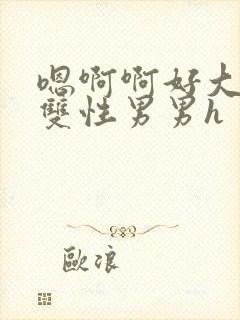 嗯啊啊好大
雙性男男h
歐浪